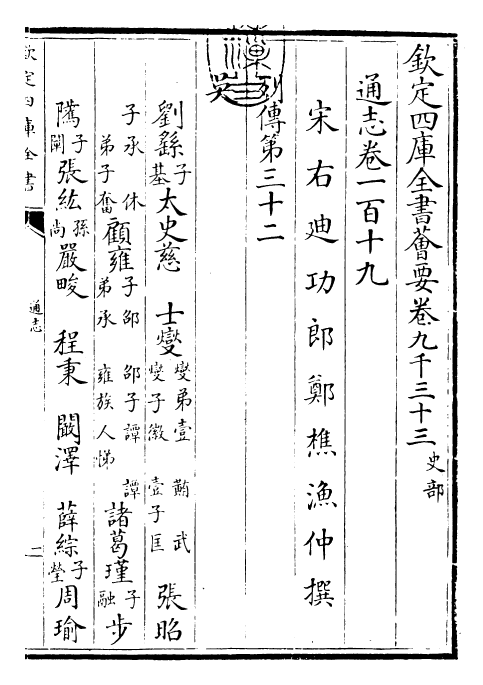 欽定四庫全書薈要卷九千三十三 史部
通志卷一百十九
宋右迪功郎鄭樵漁仲撰
列傳第三十二
吳
劉繇子基 太史慈 士燮燮弟壹 䵋 武 燮子徽 壹子匡 張昭
子承 休 弟子奮 顧雍子邵 邵子譚 譚弟承 雍族人悌 諸葛瑾子融 步
騭子闡 張紘孫尚 嚴畯 程秉 闞澤 薛綜子瑩 周瑜
欽定四庫全書
通志